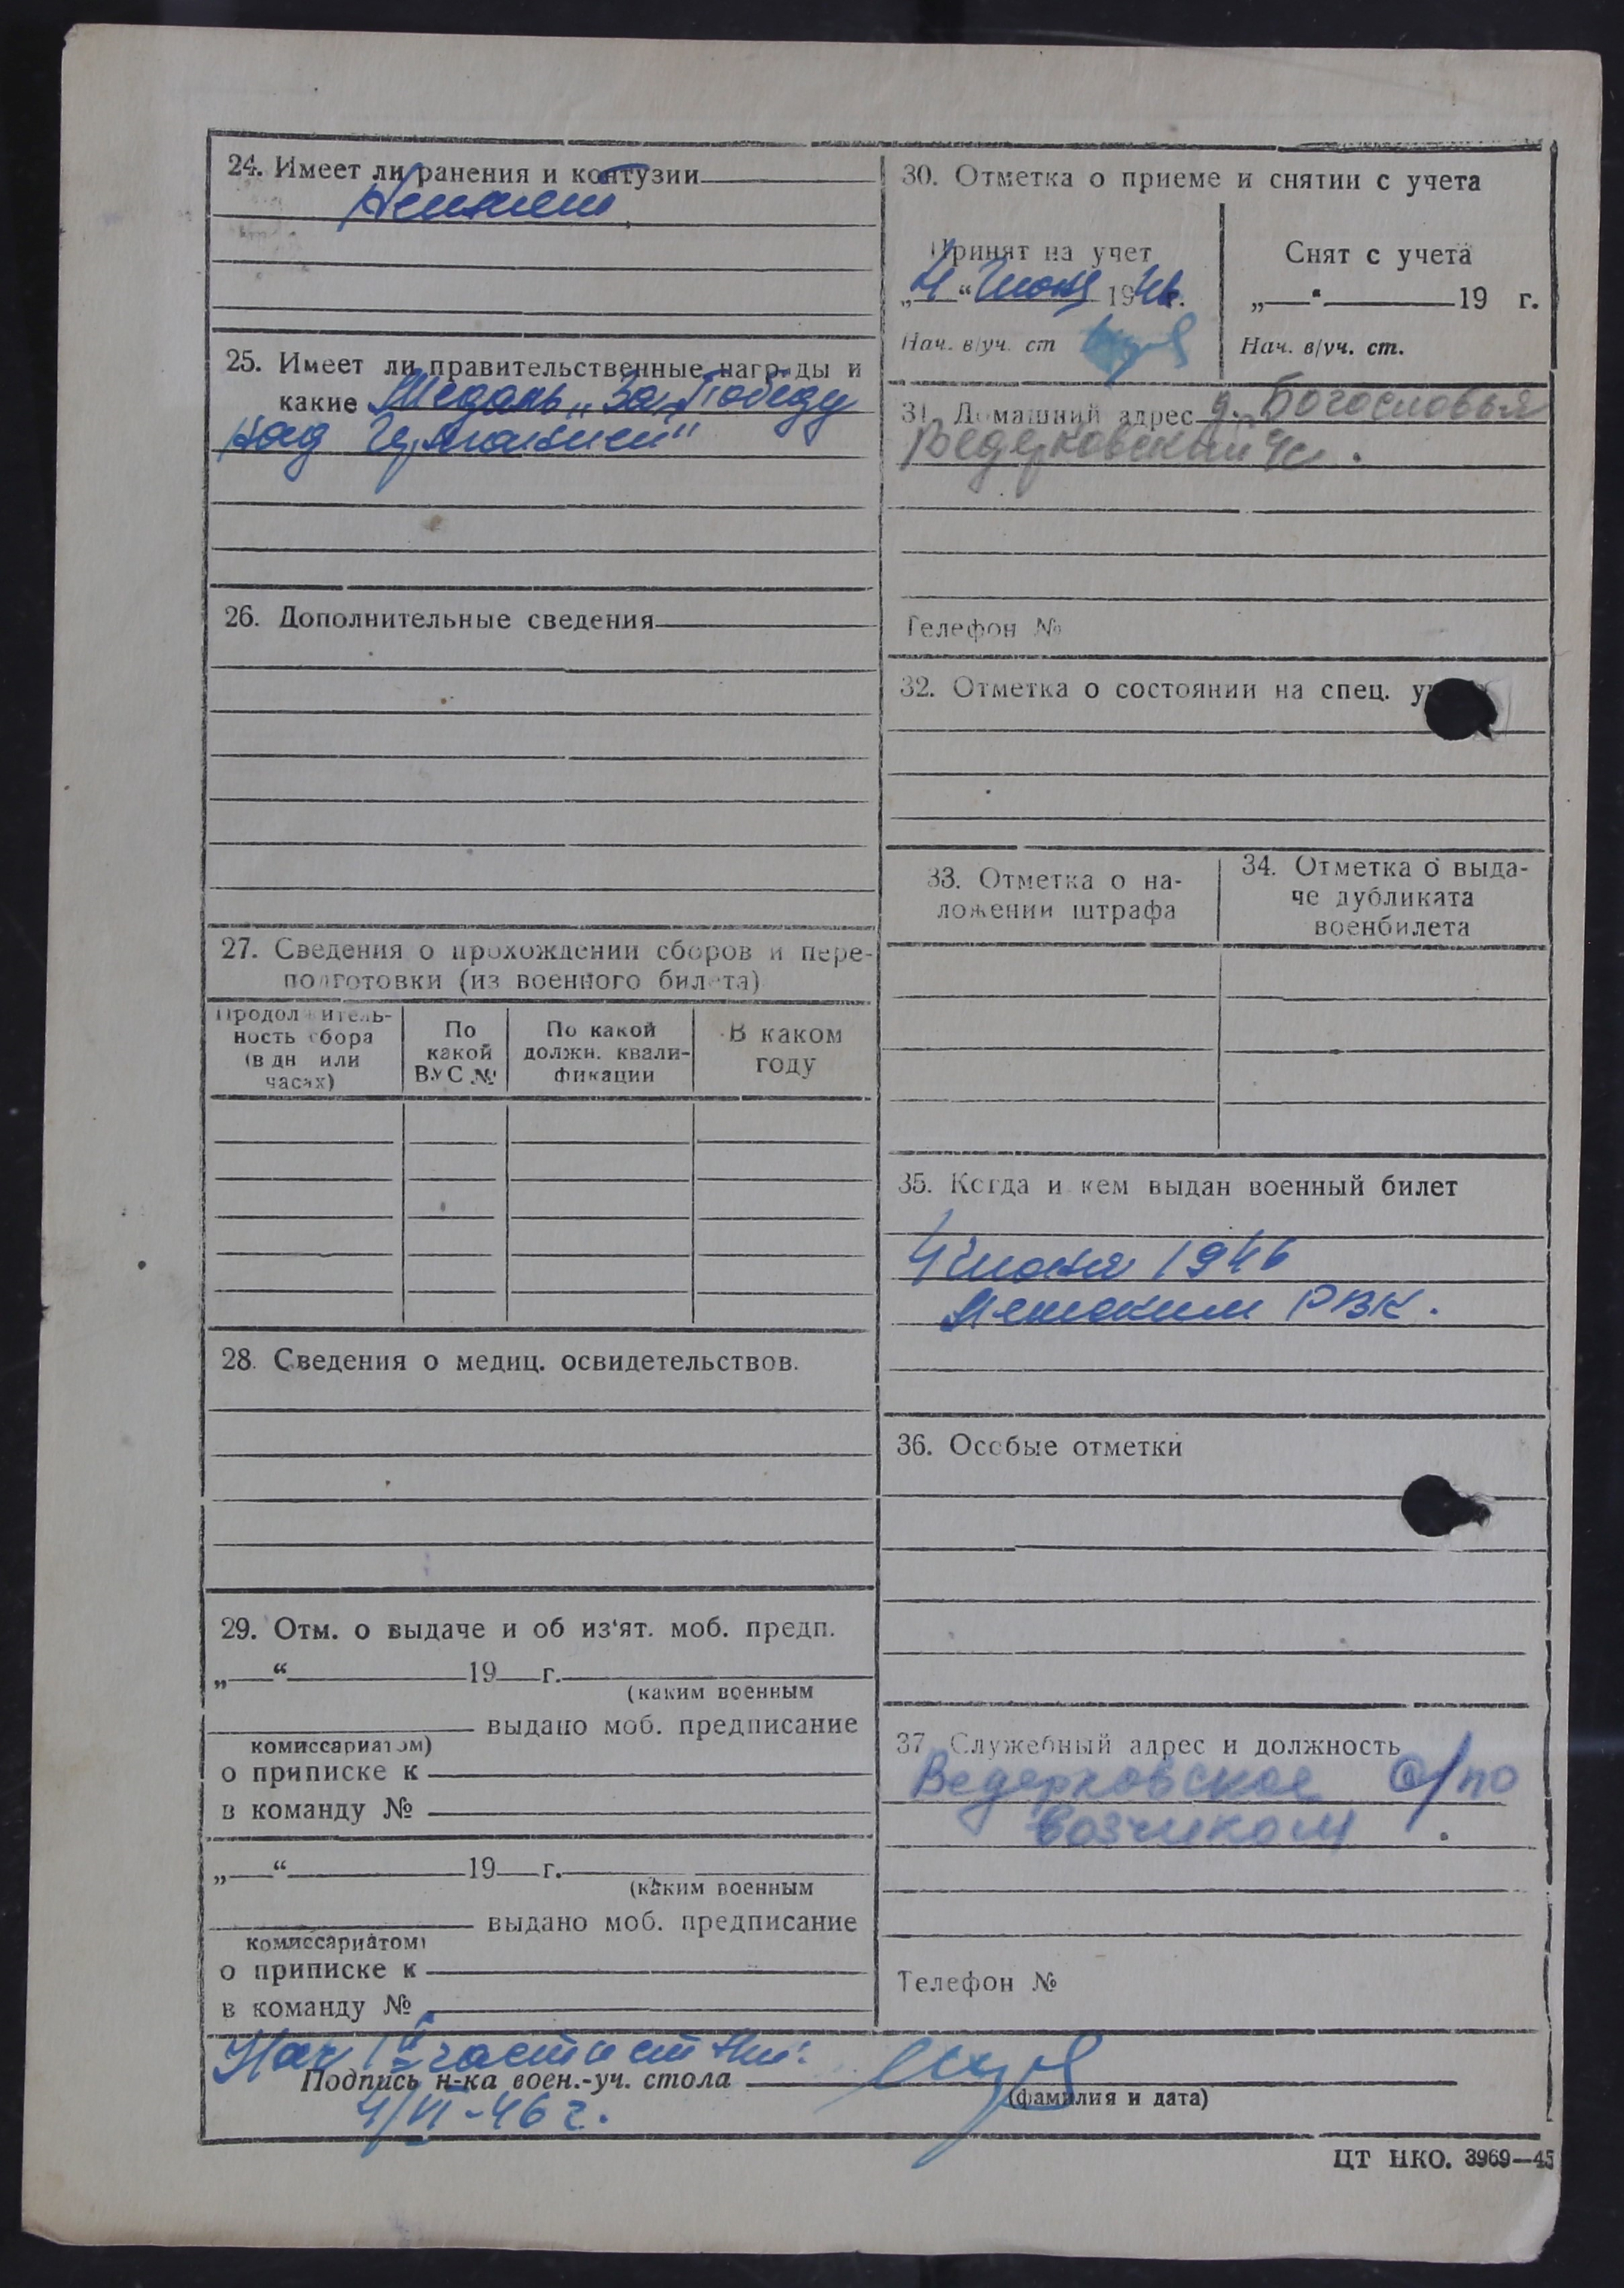 24. Имеет ли ранения и контузии
Неимеет
25. Имеет ли правительственные награды и
какие Медаль „За Победу
над Германией"
26. Дополнительные сведения
27. Сведения о прохождении сборов и пере-
подготовки (из военного билета)
Продолжитель-
ность сбора
(в дн или
часах)
По
какой
ВУС №
По какой
должн. квали-
фикации
В каком
году
28. Сведения о медиц. освидетельствов.
29. Отм. о выдаче и об из'ят. моб. предп.
„ “ 19 г.
(каким военным
выдано моб. предписание
комиссариатом)
о приписке к
в команду №
„ “ 19 г.
(каким военным
выдано моб. предписание
комиссариатом)
о приписке к
в команду №
30. Отметка о приеме и снятии с учета
Принят на учет
„4“ Июня 1946г.
Нач. в/уч. ст
Снят с учета
„ “ 19 г.
Нач. в/уч. ст.
31. Домашний адрес д. Богословья
Ведерковский
Телефон №
32. Отметка о состоянии на спец.
33. Отметка о на-
ложении штрафа
34. Отметка о выда-
че дубликата
военбилета
35. Когда и кем выдан военный билет
4 июня 1946
РВК.
36. Особые отметки
37. Служебный адрес и должность
Ведерковское с/по
возчиком
Телефон №
Нач части
Подпись н-ка воен.-уч. стола
(фамилия и дата)
4/VI-46 г.
ЦТ НКО. 3969—45